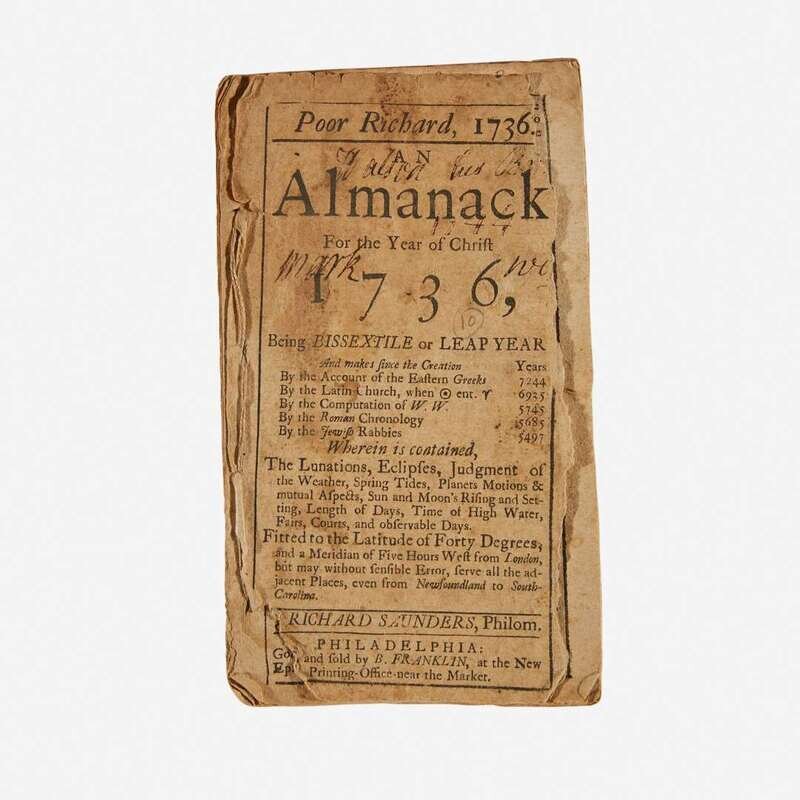 Poor Richard, 1736.
AN
Almanack
For the Year of Chriſt
mark
1736,
10
Being BISSEXTILE or LEAP YEAR
And makes ſince the Creation Years
By the Account of the Eaſtern Greeks 7244
By the Latin Church, when ☉ ent. ♈ 6935
By the Computation of W. W. 5745
By the Roman Chronology 5685
By the Jewiſh Rabbies 5497
Wherein is contained,
The Lunations, Eclipſes, Judgment of
the Weather, Spring Tides, Planets Motions &
mutual Aſpects, Sun and Moon's Riſing and Set-
ting, Length of Days, Time of High Water,
Fairs, Courts, and obſervable Days.
Fitted to the Latitude of Forty Degrees,
and a Meridian of Five Hours Weſt from London,
but may without ſenſible Error, ſerve all the ad-
jacent Places, even from Newfoundland to South-
Carolina.
RICHARD SAUNDERS, Philom.
PHILADELPHIA:
and ſold by B. FRANKLIN, at the New
Printing-Office near the Market.